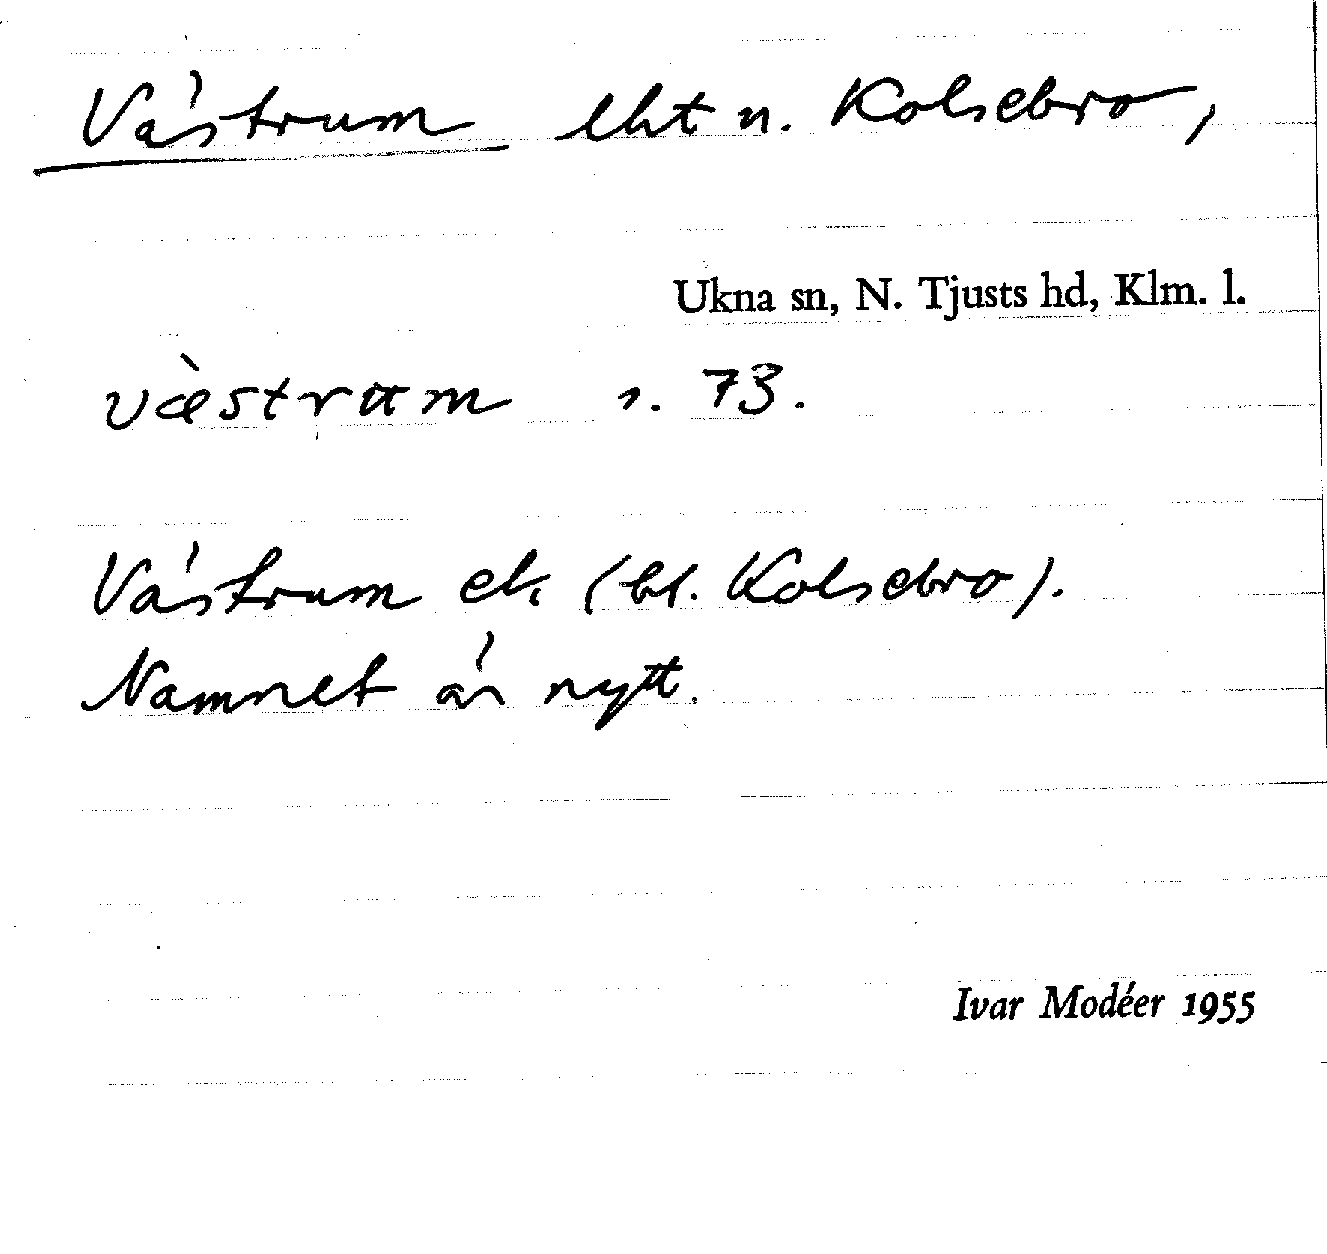 Västrum lht u. Kolsebro,
Ukna sn, N. Tjusts hd, Klm. l.
væ̀strum s. 73.
Västrum ek (bl. Kolsebro).
Namnet är nytt.
Ivar Modéer 1955